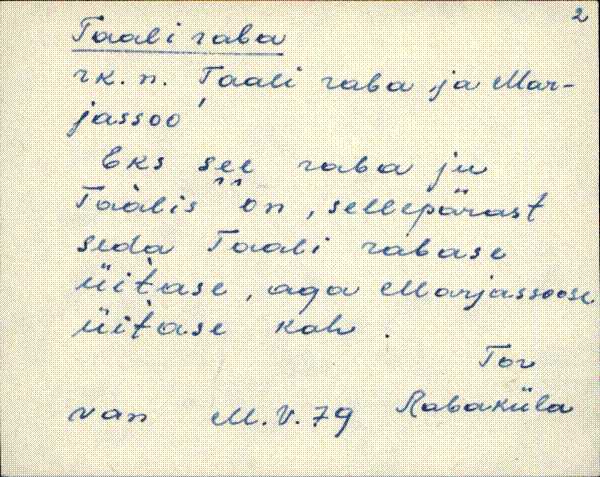 2
Taali raba
rk. n. Taali raba ja Mar-
jassoo
Eks see raba ju
Taàlis on, sellepärast
seda Taali rabase
üitase, aga Marjassoose
üitase kah.
Tor
van M. V. 79 Rabaküla